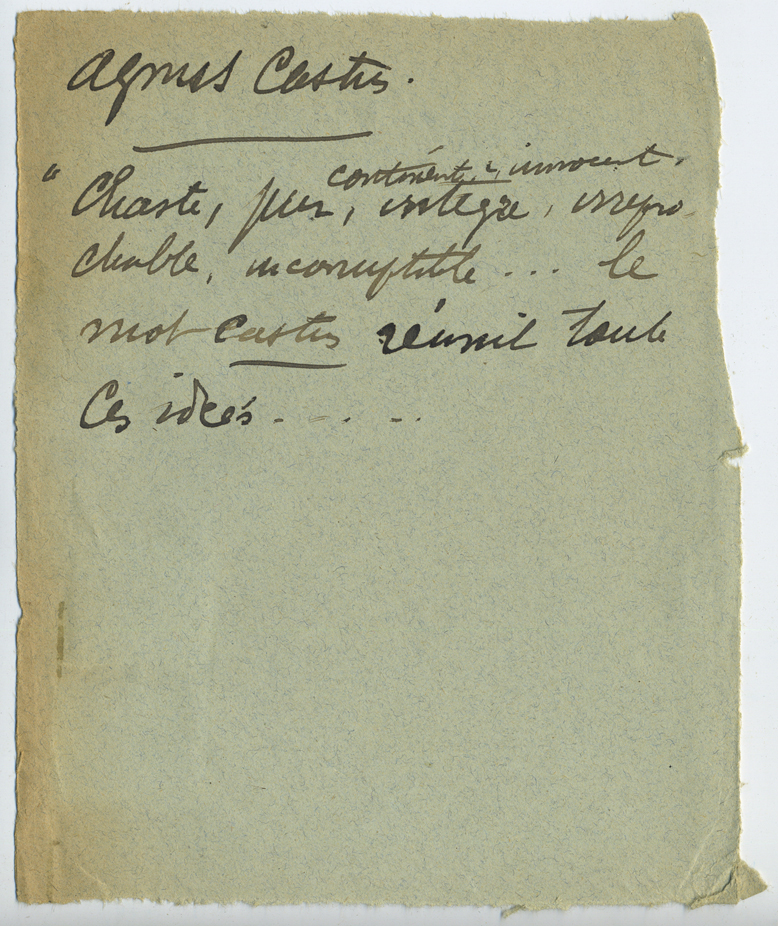 Agnus Castus.
continent, innocent.
" Chaste, pur, intègre, irrépro-
chable, incorruptible... le
mot castus réunit toute
ces idées.....